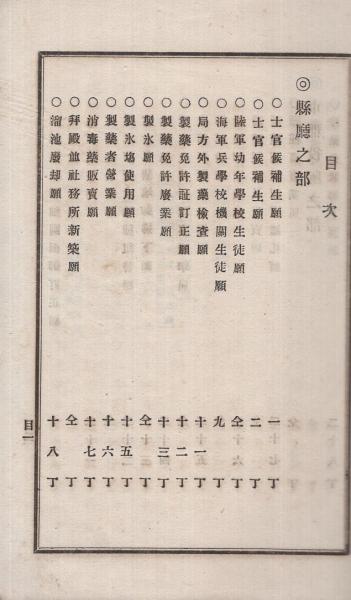 目次
◎縣廳之部
○士官候補生願 一丁
○士官候補生願 二丁
○陸軍幼年學校生徒願 仝丁
○海軍兵學校機關生徒願 九丁
○局方外製藥檢査願 十一丁
○製藥免許証訂正願 十二丁
○製藥免許廢業願 十三丁
○製氷願 仝丁
○製氷塲使用願 十五丁
○製藥者營業願 十六丁
○消毒藥販賣願 十七丁
○拜殿並社務所新築願 仝丁
○溜池廢却願 十八丁
目一